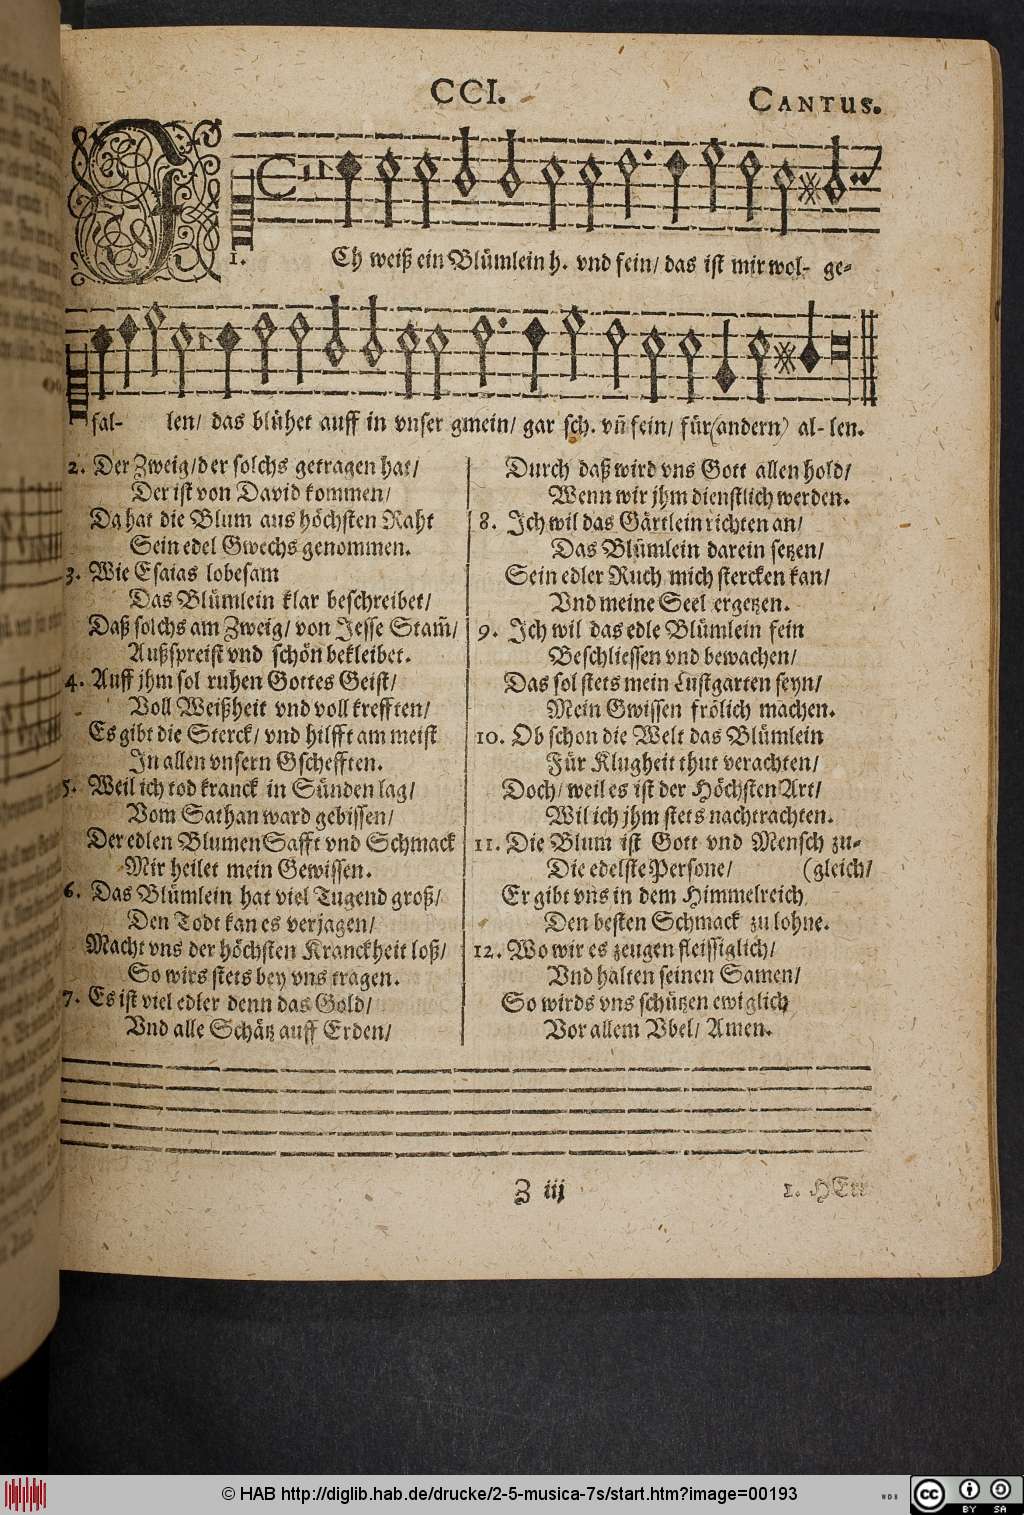 CCI.
CANTUS.
I
1. Ch weiß ein Blümlein h. vnd fein/ das ist mir wol- ge-
fal- len/ das blühet auff in vnser gmein/ gar sch. vñ fein/ für (andern) al- len.
2. Der Zweig/ der solchs getragen hat/
Der ist von David kommen/
Da hat die Blum aus höchsten Raht
Sein edel Gwechs genommen.
3. Wie Esaias lobesam
Das Blümlein klar beschreibet/
Daß solchs am Zweig/ von Jesse Stam̃/
Außspreist vnd schön bekleibet.
4. Auff jhm sol ruhen Gottes Geist/
Voll Weißheit vnd voll krefften/
Es gibt die Sterck/ vnd hilfft am meist
In allen vnsern Gschefften.
5. Weil ich tod kranck in Sünden lag/
Vom Sathan ward gebissen/
Der edlen Blumen Safft vnd Schmack
Mir heilet mein Gewissen.
6. Das Blümlein hat viel Tugend groß/
Den Todt kan es verjagen/
Macht vns der höchsten Kranckheit loß/
So wirs stets bey vns tragen.
7. Es ist viel edler denn das Gold/
Vnd alle Schätz auff Erden/
Durch daß wird vns Gott allen hold/
Wenn wir jhm dienstlich werden.
8. Ich wil das Gärtlein richten an/
Das Blümlein darein setzen/
Sein edler Ruch mich stercken kan/
Vnd meine Seel ergetzen.
9. Ich wil das edle Blümlein fein
Beschliessen vnd bewachen/
Das sol stets mein Lustgarten seyn/
Mein Gwissen frölich machen.
10. Ob schon die Welt das Blümlein
Für Klugheit thut verachten/
Doch/ weil es ist der Höchsten Art/
Wil ich jhm stets nachtrachten.
11. Die Blum ist Gott vnd Mensch zu-
Die edelste Persone/ (gleich/
Er gibt vns in dem Himmelreich
Den besten Schmack zu lohne.
12. Wo wir es zeugen fleissiglich/
Vnd halten seinen Samen/
So wirds vns schützen ewiglich
Vor allem Vbel/ Amen.
Z iij
1. HErr
© HAB http://diglib.hab.de/drucke/2-5-musica-7s/start.htm?image=00193
WDB
cc BY SA